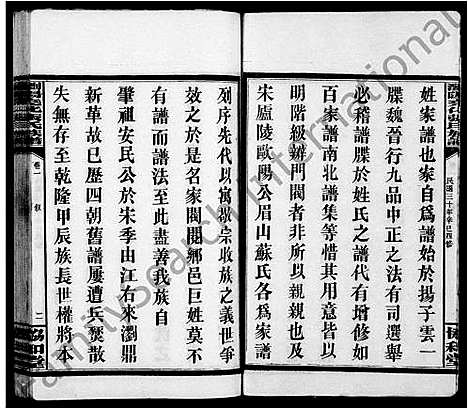 姓家譜也家自爲譜始於揚子雲一
牒魏晉行九品中正之法有司選舉
必稽譜牒於姓氏之譜代有增修如
百家譜南北譜集其用意皆以
明階級辨門閥者非所以親親也及
宋廬陵歐陽公眉山蘇氏各爲家譜
民國三十年辛巳四修
協和堂
列序先代以寓敬宗收族之義世爭
效之於是名家閥閱鄉邑巨姓莫不
有譜而譜法至此盡善我族自
肇祖安民公於宋季由江右來瀏鼎
新革故已歷四朝舊譜屢遭兵燹散
失無存至乾隆甲辰族長世權將本
卷一
叙
二
協和堂
familysearch international